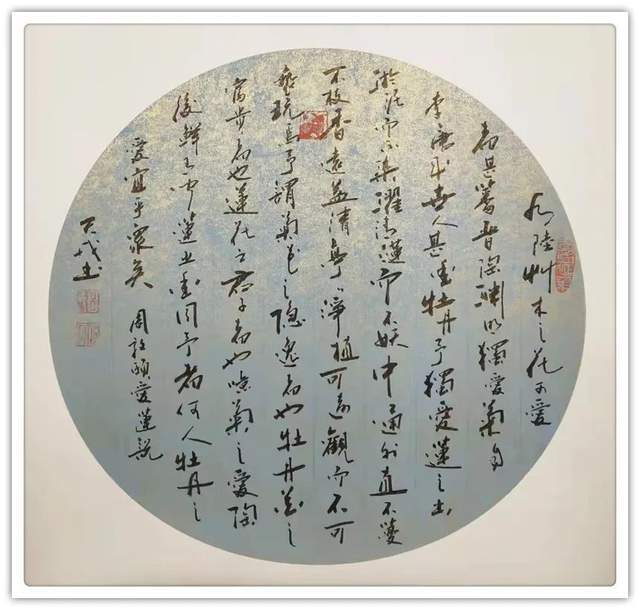 水陸艸木之花可愛
者甚蕃晉陶渊明獨愛菊自
李唐来世人甚愛牡丹予獨愛蓮之出
淤泥而不染濯清漣而不妖中通外直不蔓
不枝香遠益清亭〻淨植可遠觀而不可
褻玩焉予謂菊花之隐逸者也牡丹花之
富貴者也蓮花之君子者也噫菊之愛陶
後鮮有聞蓮之愛同予者何人牡丹之
愛宜乎衆矣 周敦頤愛蓮説
书